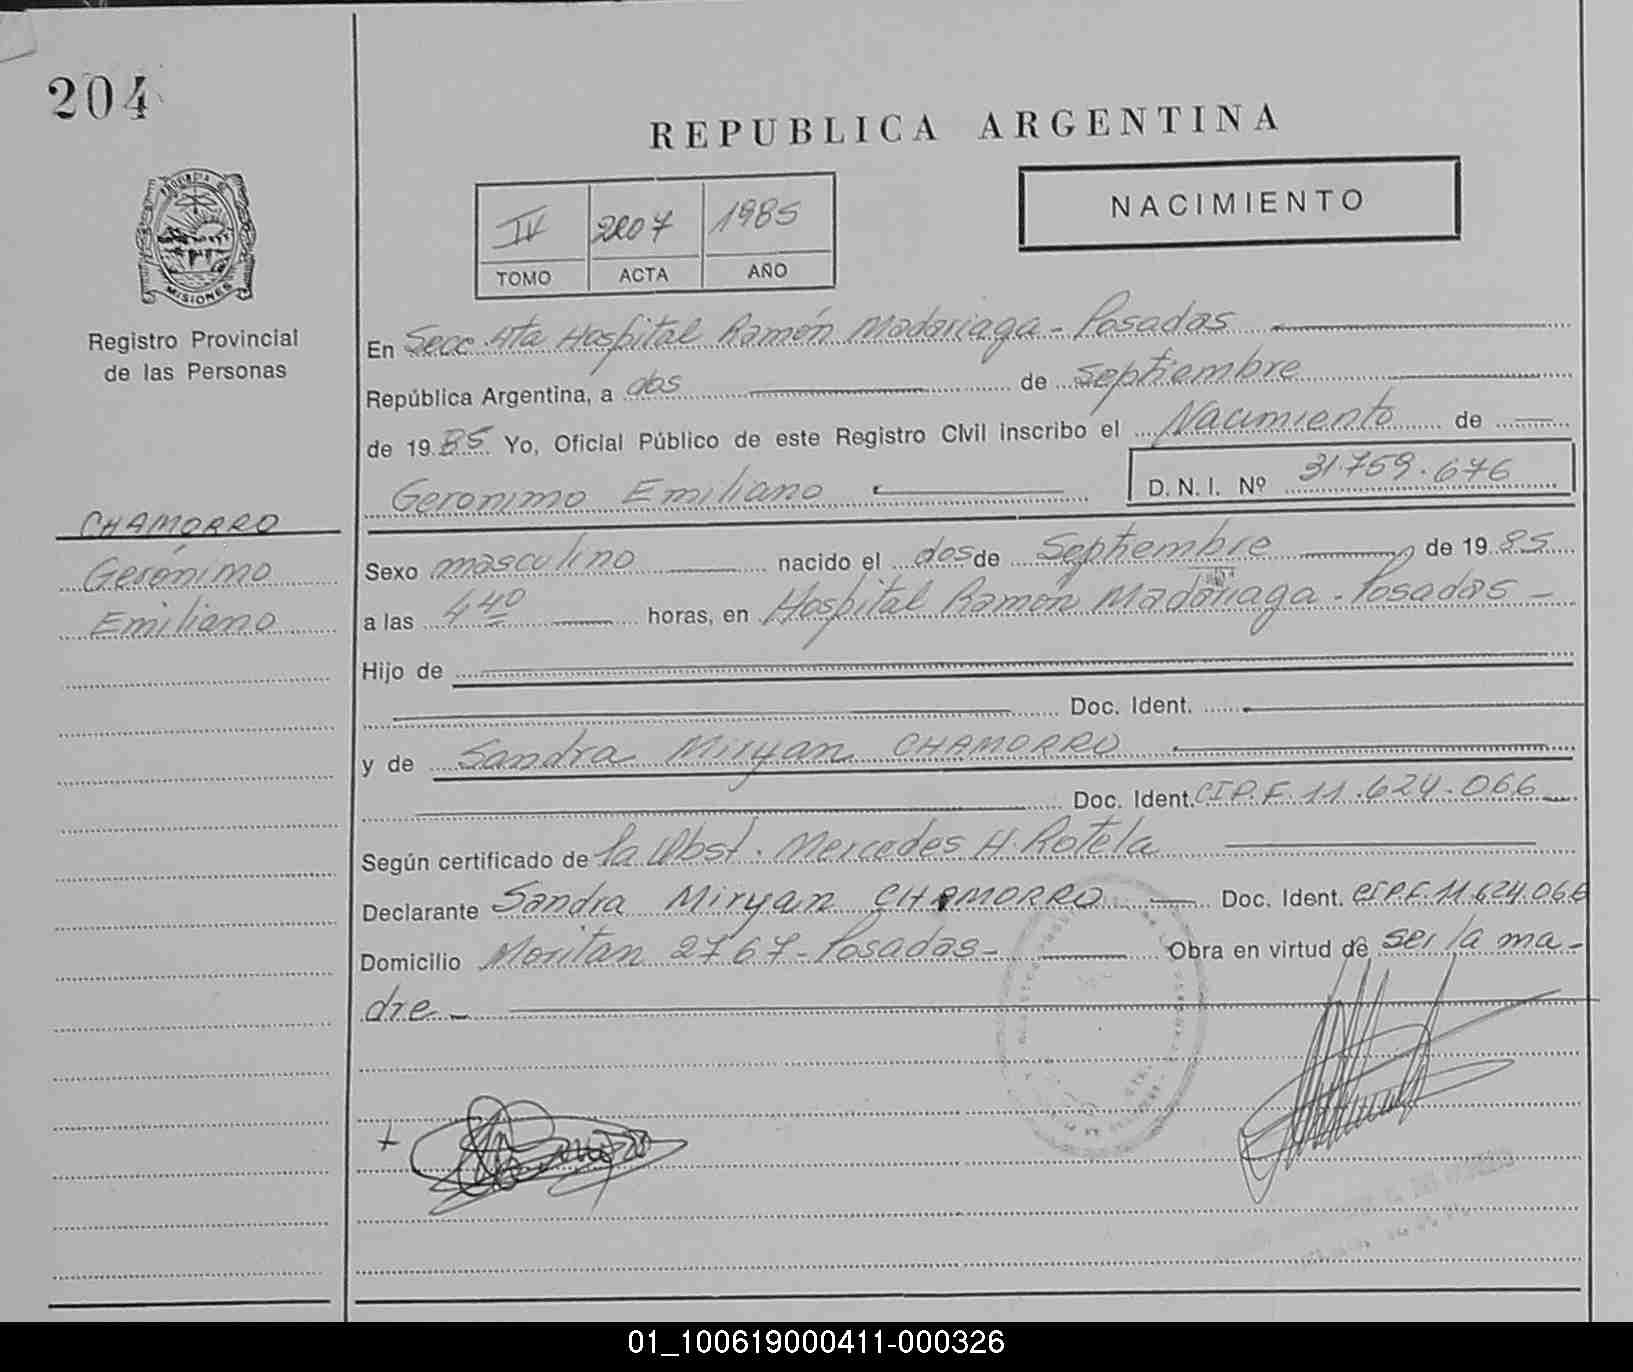 204
REPUBLICA ARGENTINA
NACIMIENTO
IV 2207 1985
TOMO ACTA AÑO
PROVINCIA DE
MISIONES
Registro Provincial
de las Personas
CHAMORRO
Gerónimo
Emiliano
En Secc. 4ta Hospital Ramón Madariaga - Posadas
República Argentina, a dos de septiembre
de 1985 Yo, Oficial Público de este Registro Civil inscribo el Nacimiento de
Geronimo Emiliano D.N.I. Nº 31.759.676
Sexo masculino nacido el dos de Septiembre de 1985
a las 4 40 horas, en Hospital Ramón Madariaga - Posadas -
Hijo de
Doc. Ident.
y de Sandra Miryan CHAMORRO
Doc. Ident. CIP.F. 11.624.066
Según certificado de la Obst. Mercedes H. Rotela
Declarante Sandra Miryan CHAMORRO Doc. Ident. CIP.F. 11.624.066
Domicilio Moritan 2767 - Posadas - Obra en virtud de ser la ma-
dre -
01_100619000411-000326